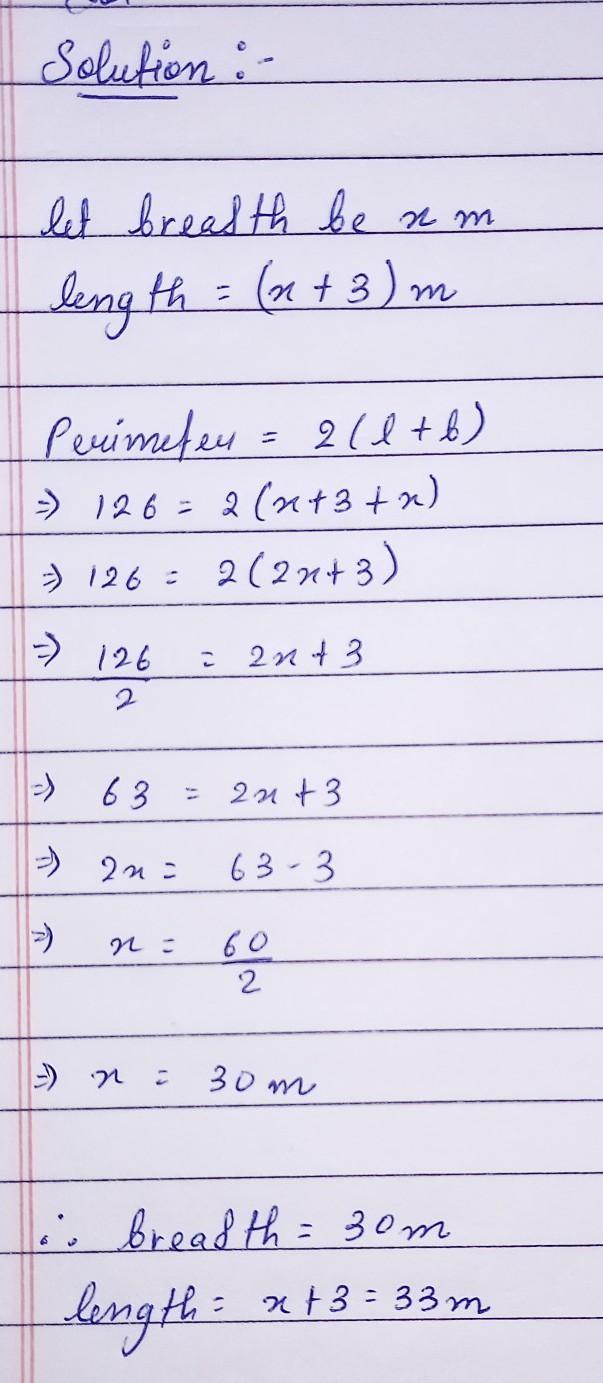 Solution :-
let breadth be x m
length = (x + 3) m
Perimeter = 2(l + b)
⇒ 126 = 2(x+3+x)
⇒ 126 = 2(2x+3)
⇒ 126/2 = 2x + 3
⇒ 63 = 2x + 3
⇒ 2x = 63 - 3
⇒ x = 60/2
⇒ x = 30 m
∴ breadth = 30 m
length = x + 3 = 33 m